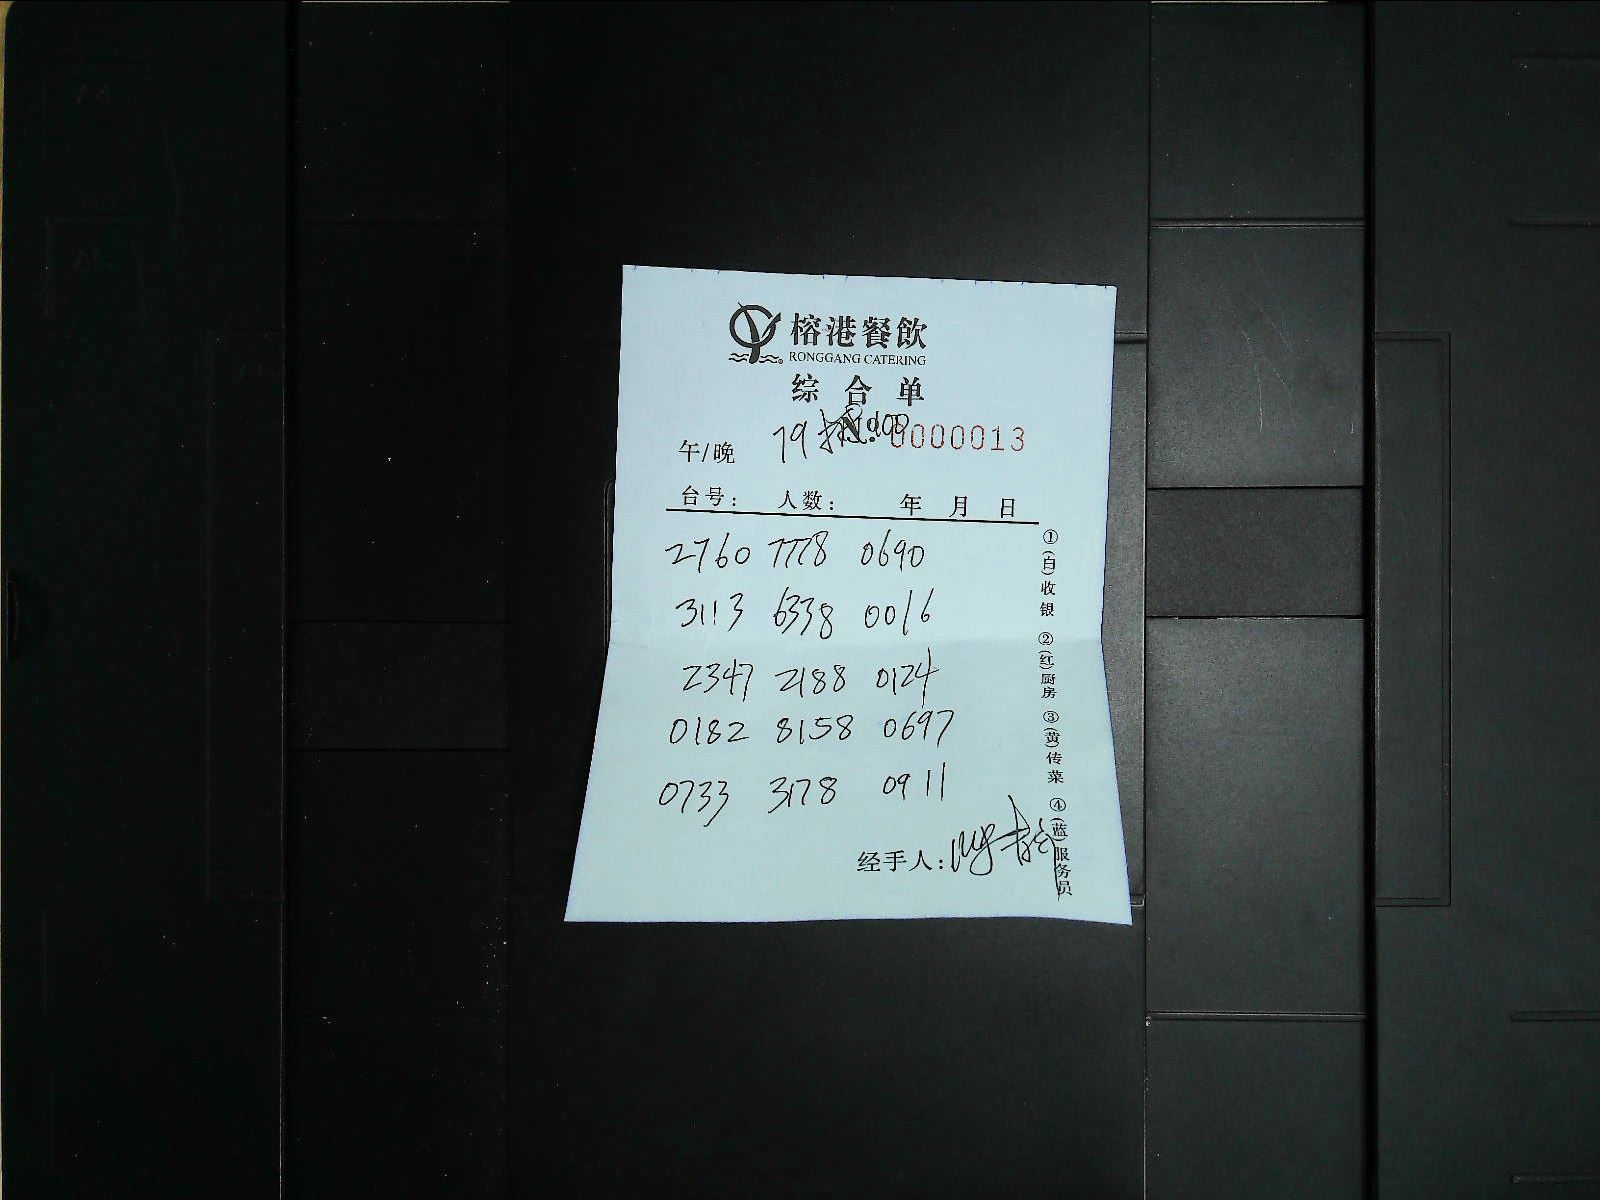 榕港餐飲
RONGGANG CATERING
综合单
No. 0000013
午/晚 79
台号: 人数: 年 月 日
2760 7778 0690
3113 6338 0016
2347 2188 0124
0182 8158 0697
0733 3178 0911
经手人:
①(白)收银 ②(红)厨房 ③(黄)传菜 ④(蓝)服务员